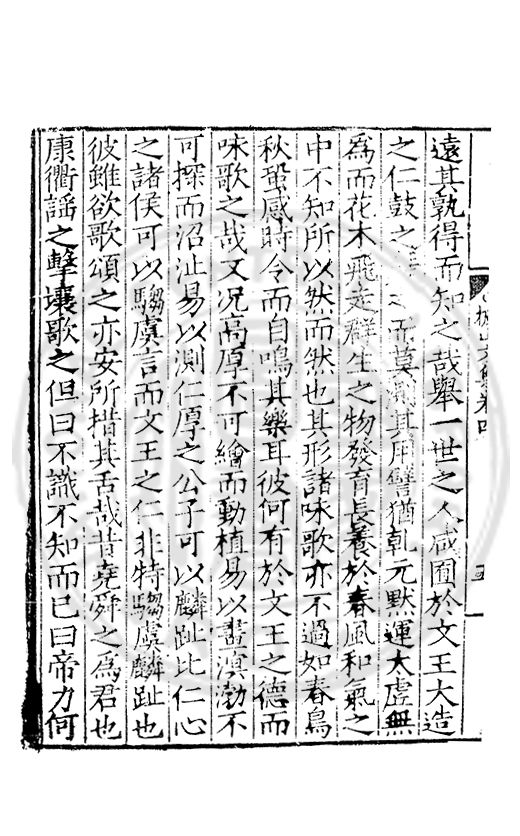 遠其孰得而知之哉舉一世之人咸囿於文王大造
之仁鼓之而莫測其用譬猶乾元默運大虛無
爲而花木飛走群生之物發育長養於春風和氣之
中不知所以然而然也其形諸咏歌亦不過如春鳥
秋蛩感時令而自鳴其樂耳彼何有於文王之德而
咏歌之哉又况高厚不可繪而動植易以畫溟渤不
可探而沼沚易以測仁厚之公子可以麟趾比仁心
之諸侯可以騶虞言而文王之仁非特騶虞麟趾也
彼雖欲歌頌之亦安所措其舌哉昔堯舜之爲君也
康衢謡之擊壤歌之但曰不識不知而已曰帝力何
文集卷四
五